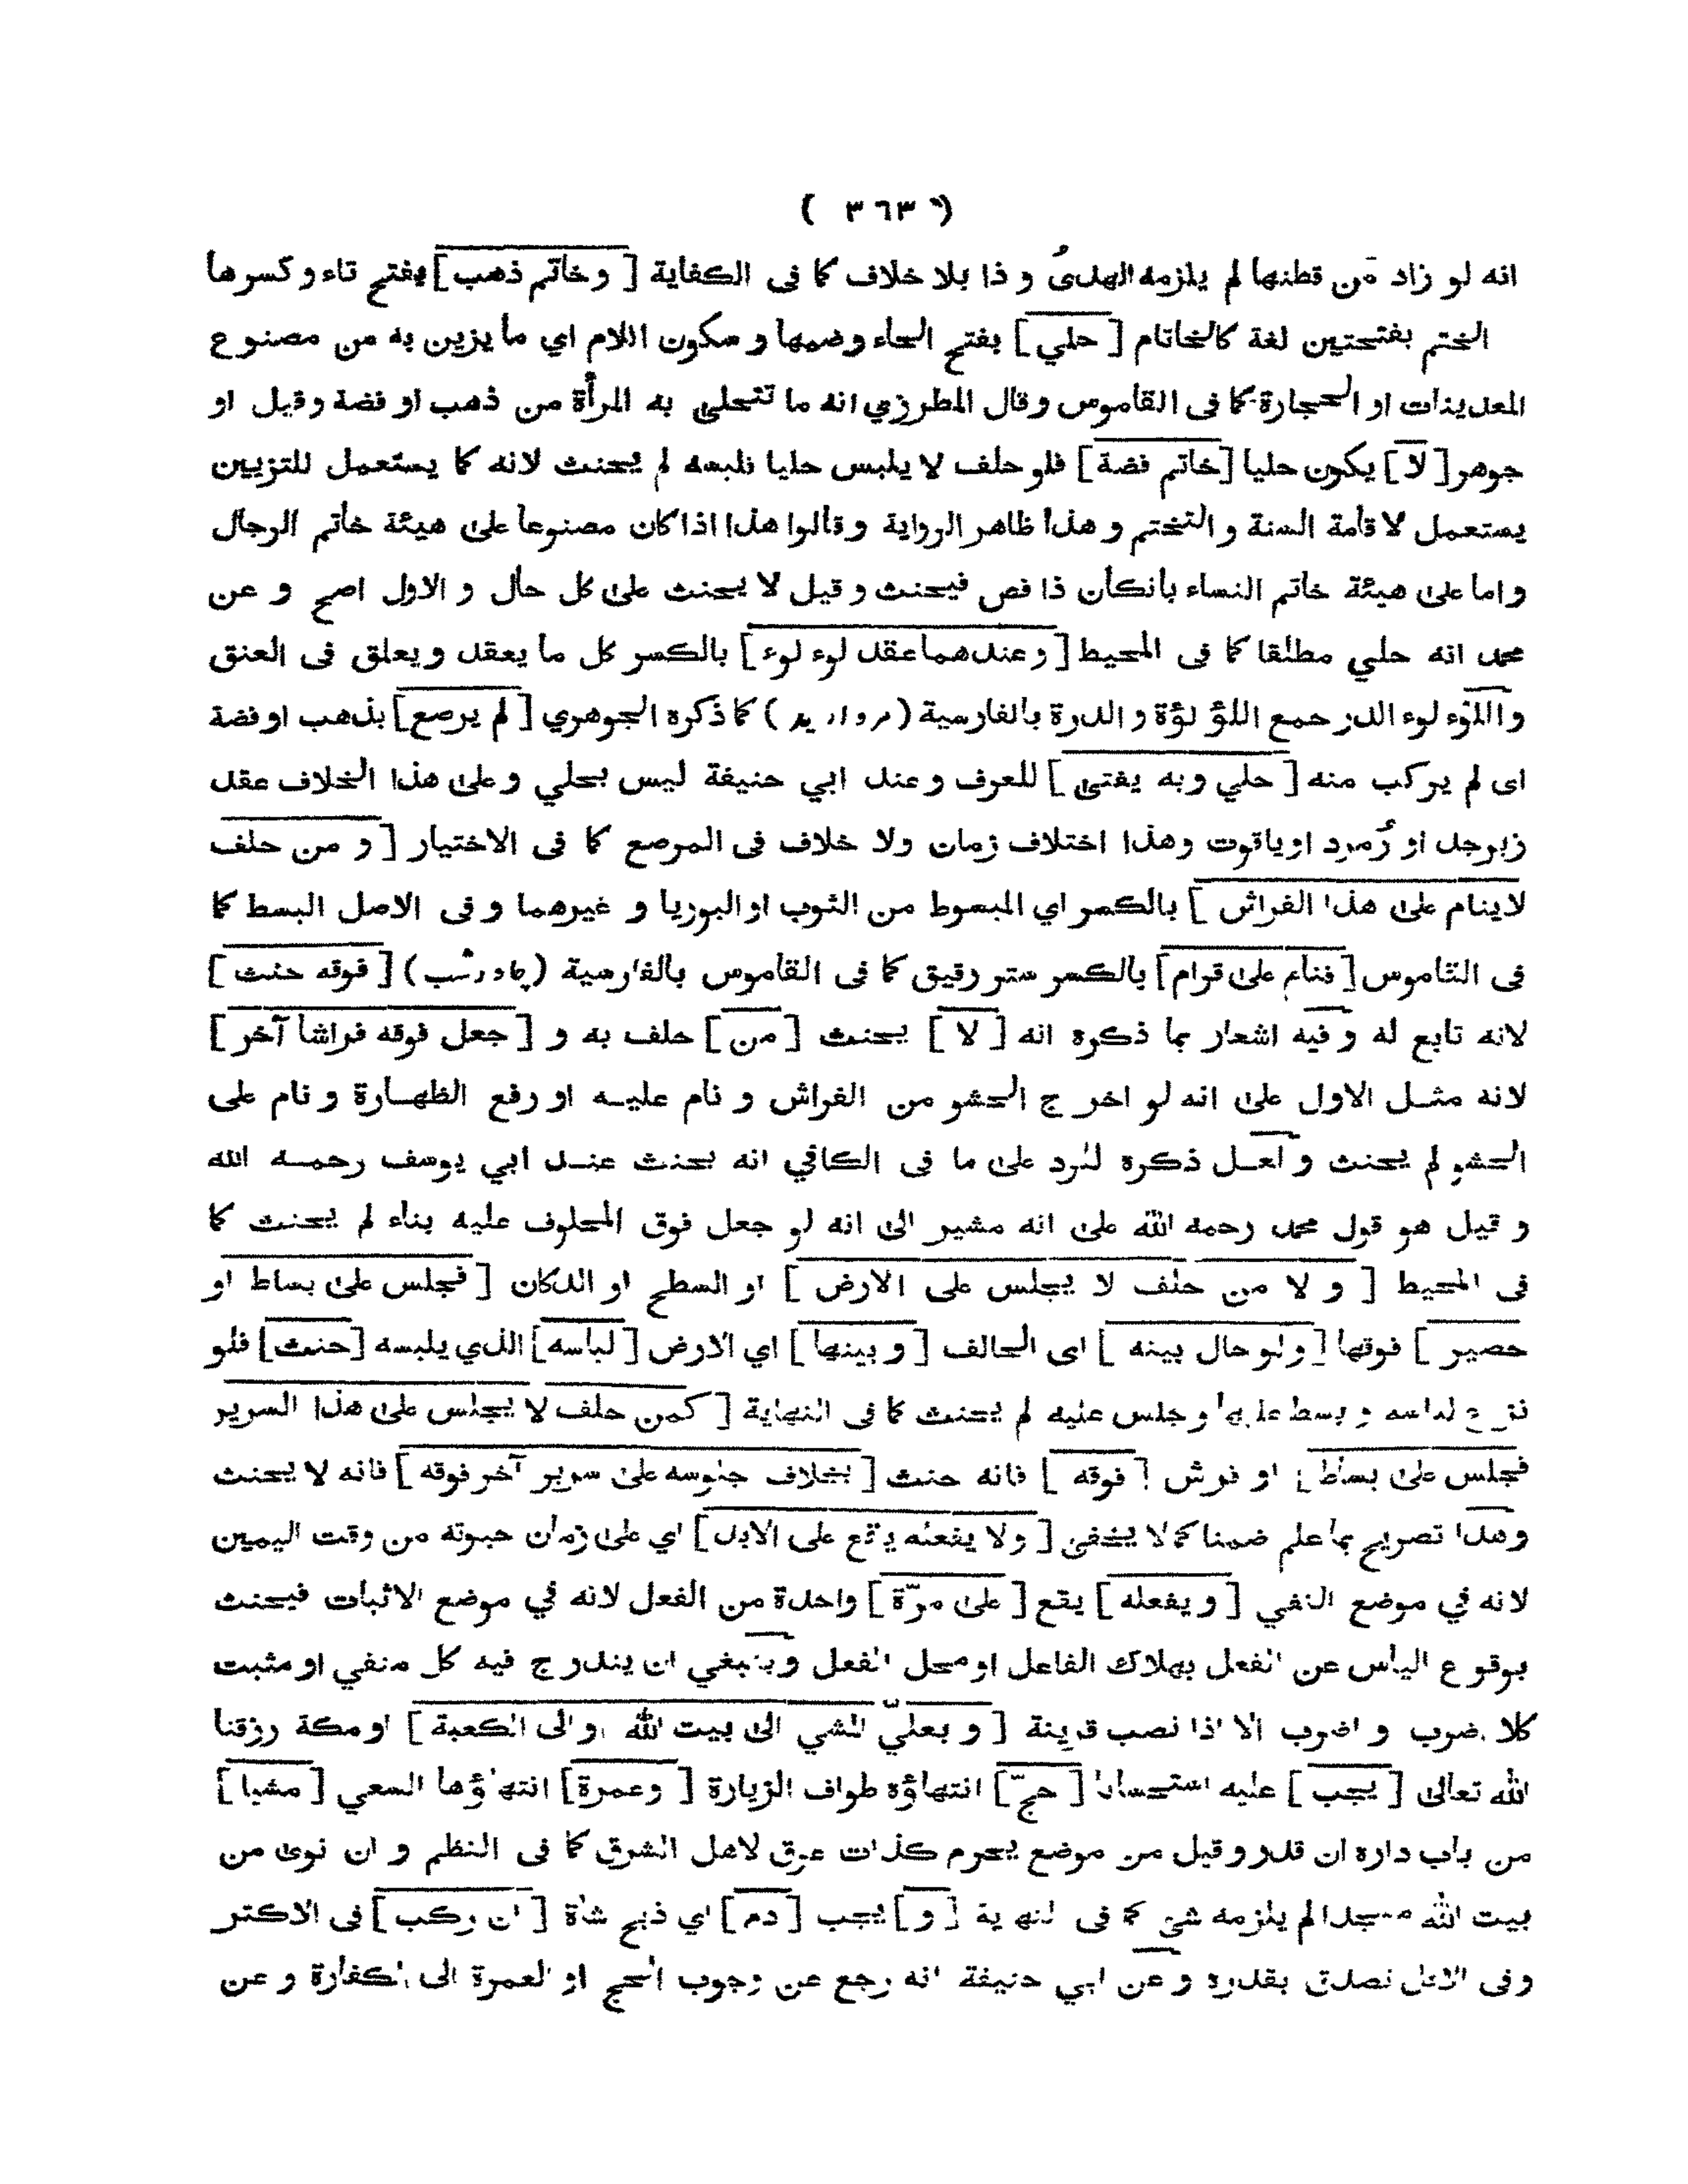 ( ٣٦٣ )
انه لو زاد من قطنها لم يلزمه الهدى و ذا بلا خلاف كما فى الكفاية [ و خاتم ذهب ] بفتح تاء و كسرها
الختم بفتحتين لغة كالخاتام [ حلي ] بفتح الحاء و ضمها و سكون اللام اي ما يزين به من مصنوع
المعدينات او الحجارة كما فى القاموس و قال المطرزي انه ما تتحلى به المرأة من ذهب او فضة و قيل او
جوهر [ لا ] يكون حليا [ خاتم فضة ] فلو حلف لا يلبس حليا فلبسه لم يحنث لانه كما يستعمل للتزيين
يستعمل لاقامة السنة و التختم و هذا ظاهر الرواية و قالوا هذا اذا كان مصنوعا على هيئة خاتم الرجال
و اما على هيئة خاتم النساء بانكان ذا فص فيحنث و قيل لا يحنث على كل حال و الاول اصح و عن
محمد انه حلي مطلقا كما فى المحيط [ و عندهما عقد لوء لوء ] بالكسر كل ما يعقد و يعلق فى العنق
و اللؤء لوء الدر جمع اللؤ لؤة و الدرة بالفارسية ( مروارید ) كما ذكره الجوهري [ لم يرصع ] بذهب او فضة
اى لم يركب منه [ حلي و به يفتى ] للعرف و عند ابي حنيفة ليس بحلي و على هذا الخلاف عقد
زبرجد او زمرد او ياقوت و هذا اختلاف زمان ولا خلاف فى المرصع كما فى الاختيار [ و من حلف
لا ينام على هذا الفراش ] بالكسر اي المبسوط من الثوب او البوريا و غيرهما و فى الاصل البسط كما
فى القاموس [ فنام على قرام ] بالكسر ستر رقيق كما فى القاموس بالفارسية ( چادرشب ) [ فوقه حنث ]
لانه تابع له و فيه اشعار بما ذكره انه [ لا ] يحنث [ من ] حلف به و [ جعل فوقه فراشا آخر ]
لانه مثل الاول على انه لو اخرج الحشو من الفراش و نام عليه او رفع الظهارة و نام على
الحشو لم يحنث و لعل ذكره لنرد على ما فى الكافي انه يحنث عند ابي يوسف رحمه الله
و قيل هو قول محمد رحمه الله على انه مشير الى انه لو جعل فوق المحلوف عليه بناء لم يحنث كما
فى المحيط [ و لا من حلف لا يجلس على الارض ] او السطح او الدكان [ فجلس على بساط او
حصير ] فوقها [ ولو حال بينه ] اى الحالف [ و بينها ] اي الارض [ لباسه ] الذي يلبسه [ حنث ] فلو
نزع لباسه و بسط عليها و جلس عليه لم يحنث كما فى النهاية [ كمن حلف لا يجلس على هذا السرير
فجلس على بساط ] او فرش [ فوقه ] فانه حنث [ بخلاف جلوسه على سرير آخر فوقه ] فانه لا يحنث
و هذا تصريح بما علم ضمنا كما لا يخفى [ ولا يفعله يقع على الابد ] اي على زمان حيوته من وقت اليمين
لانه في موضع النفي [ و يفعله ] يقع [ على مرّة ] واحدة من الفعل لانه في موضع الاثبات فيحنث
بوقوع الياس عن الفعل بهلاك الفاعل او محل الفعل و ينبغي ان يندرج فيه كل منفي او مثبت
كلا ضرب و اضرب الا اذا نصب قرينة [ و بعليّ المشي الى بيت الله او الى الكعبة ] او مكة رزقنا
الله تعالى [ يجب ] عليه استحسانا [ حجّ ] انتهاؤه طواف الزيارة [ و عمرة ] انتهاؤها السعي [ مشيا ]
من باب داره ان قدر و قيل من موضع يحرم كذات عرق لاهل الشرق كما فى النظم و ان نوى من
بيت الله مسجدا لم يلزمه شئ كما فى النهاية [ و ] يجب [ دم ] اي ذبح شاة [ ان ركب ] فى الاكثر
و فى الاقل تصدق بقدره و عن ابي حنيفة انه رجع عن وجوب الحج او العمرة الى الكفارة و عن